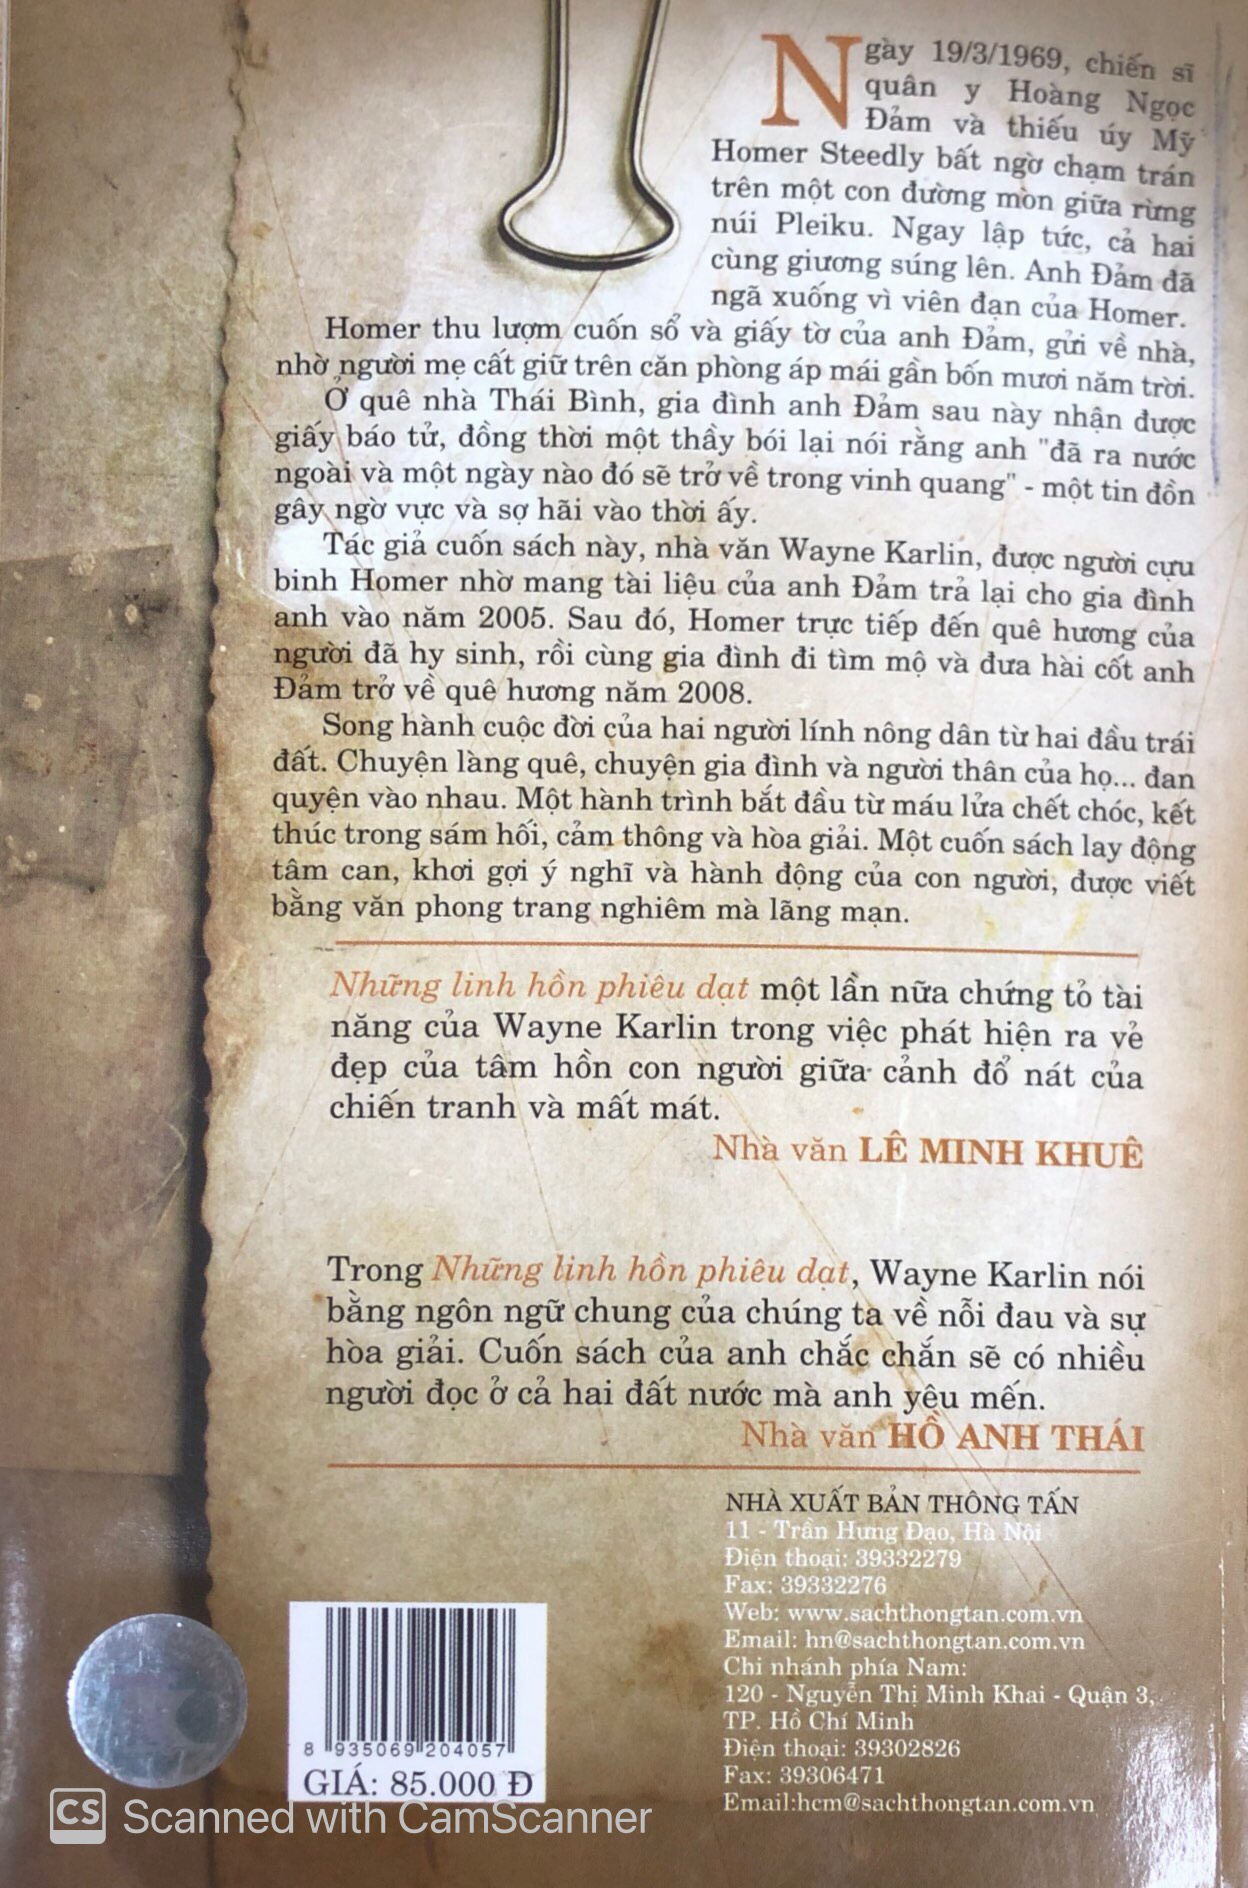 Ngày 19/3/1969, chiến sĩ
quân y Hoàng Ngọc
Đảm và thiếu úy Mỹ
Homer Steedly bất ngờ chạm trán
trên một con đường mòn giữa rừng
núi Pleiku. Ngay lập tức, cả hai
cùng giương súng lên. Anh Đảm đã
ngã xuống vì viên đạn của Homer.
Homer thu lượm cuốn sổ và giấy tờ của anh Đảm, gửi về nhà,
nhờ người mẹ cất giữ trên căn phòng áp mái gần bốn mươi năm trời.
Ở quê nhà Thái Bình, gia đình anh Đảm sau này nhận được
giấy báo tử, đồng thời một thầy bói lại nói rằng anh "đã ra nước
ngoài và một ngày nào đó sẽ trở về trong vinh quang" - một tin đồn
gây ngờ vực và sợ hãi vào thời ấy.
Tác giả cuốn sách này, nhà văn Wayne Karlin, được người cựu
binh Homer nhờ mang tài liệu của anh Đảm trả lại cho gia đình
anh vào năm 2005. Sau đó, Homer trực tiếp đến quê hương của
người đã hy sinh, rồi cùng gia đình đi tìm mộ và đưa hài cốt anh
Đảm trở về quê hương năm 2008.
Song hành cuộc đời của hai người lính nông dân từ hai đầu trái
đất. Chuyện làng quê, chuyện gia đình và người thân của họ... đan
quyện vào nhau. Một hành trình bắt đầu từ máu lửa chết chóc, kết
thúc trong sám hối, cảm thông và hòa giải. Một cuốn sách lay động
tâm can, khơi gợi ý nghĩ và hành động của con người, được viết
bằng văn phong trang nghiêm mà lãng mạn.
Những linh hồn phiêu dạt một lần nữa chứng tỏ tài
năng của Wayne Karlin trong việc phát hiện ra vẻ
đẹp của tâm hồn con người giữa cảnh đổ nát của
chiến tranh và mất mát.
Nhà văn LÊ MINH KHUÊ
Trong Những linh hồn phiêu dạt, Wayne Karlin nói
bằng ngôn ngữ chung của chúng ta về nỗi đau và sự
hòa giải. Cuốn sách của anh chắc chắn sẽ có nhiều
người đọc ở cả hai đất nước mà anh yêu mến.
Nhà văn HỒ ANH THÁI
NHÀ XUẤT BẢN THÔNG TẤN
11 - Trần Hưng Đạo, Hà Nội
Điện thoại: 39332279
Fax: 39332276
Web: www.sachthongtan.com.vn
Email: hn@sachthongtan.com.vn
Chi nhánh phía Nam:
120 - Nguyễn Thị Minh Khai - Quận 3,
TP. Hồ Chí Minh
Điện thoại: 39302826
Fax: 39306471
Email:hcm@sachthongtan.com.vn
8 935069 204057
GIÁ: 85.000 Đ
CS Scanned with CamScanner